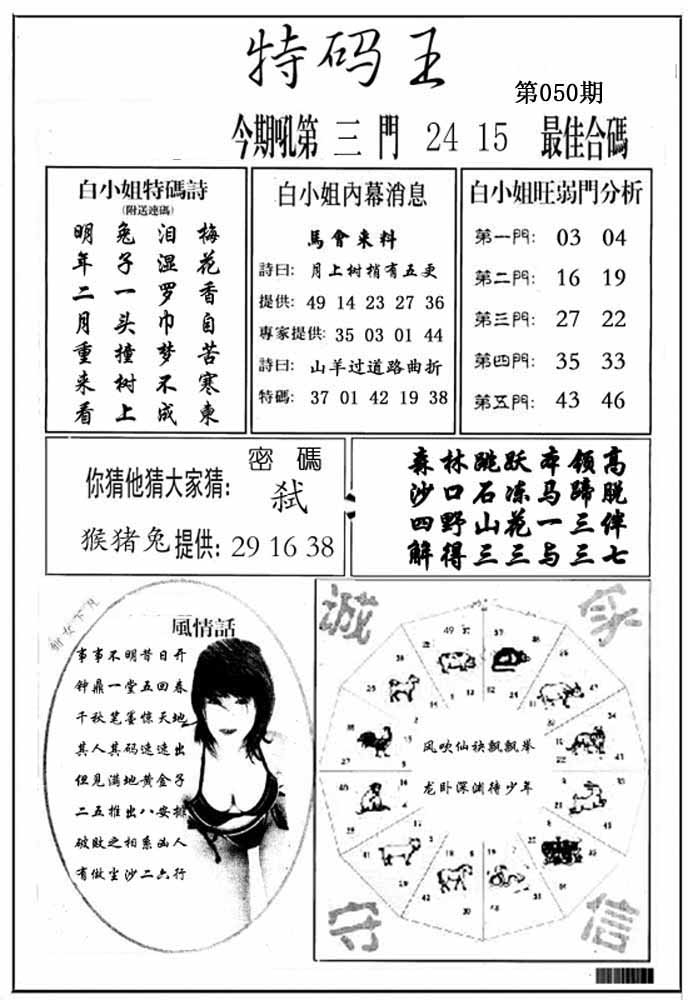 特码王
第050期
今期吼第 三 門 24 15 最佳合碼
白小姐特碼詩
(附送連碼)
梅花香自苦寒東
泪湿罗巾梦不成
兔子一头撞树上
明年二月重来看
白小姐內幕消息
馬會来料
詩曰: 月上树梢有五更
提供: 49 14 23 27 36
專家提供: 35 03 01 44
詩曰: 山羊过道路曲折
特碼: 37 01 42 19 38
白小姐旺弱門分析
第一門: 03 04
第二門: 16 19
第三門: 27 22
第四門: 35 33
第五門: 43 46
密碼
你猜他猜大家猜: 弑
猴猪兔提供: 29 16 38
森林跳跃本领高
沙口石冻马蹄脱
四野山花一三伴
解得三三与三七
風情話
事事不明昔日开
钟鼎一堂五回春
千秋笔墨惊天地
其人其码速速出
但见满地黄金子
二五推出八安排
破败之相系凶人
有做尘沙二六行
诚
信
守
风吹仙袂飘飘举
龙卧深渊待少年